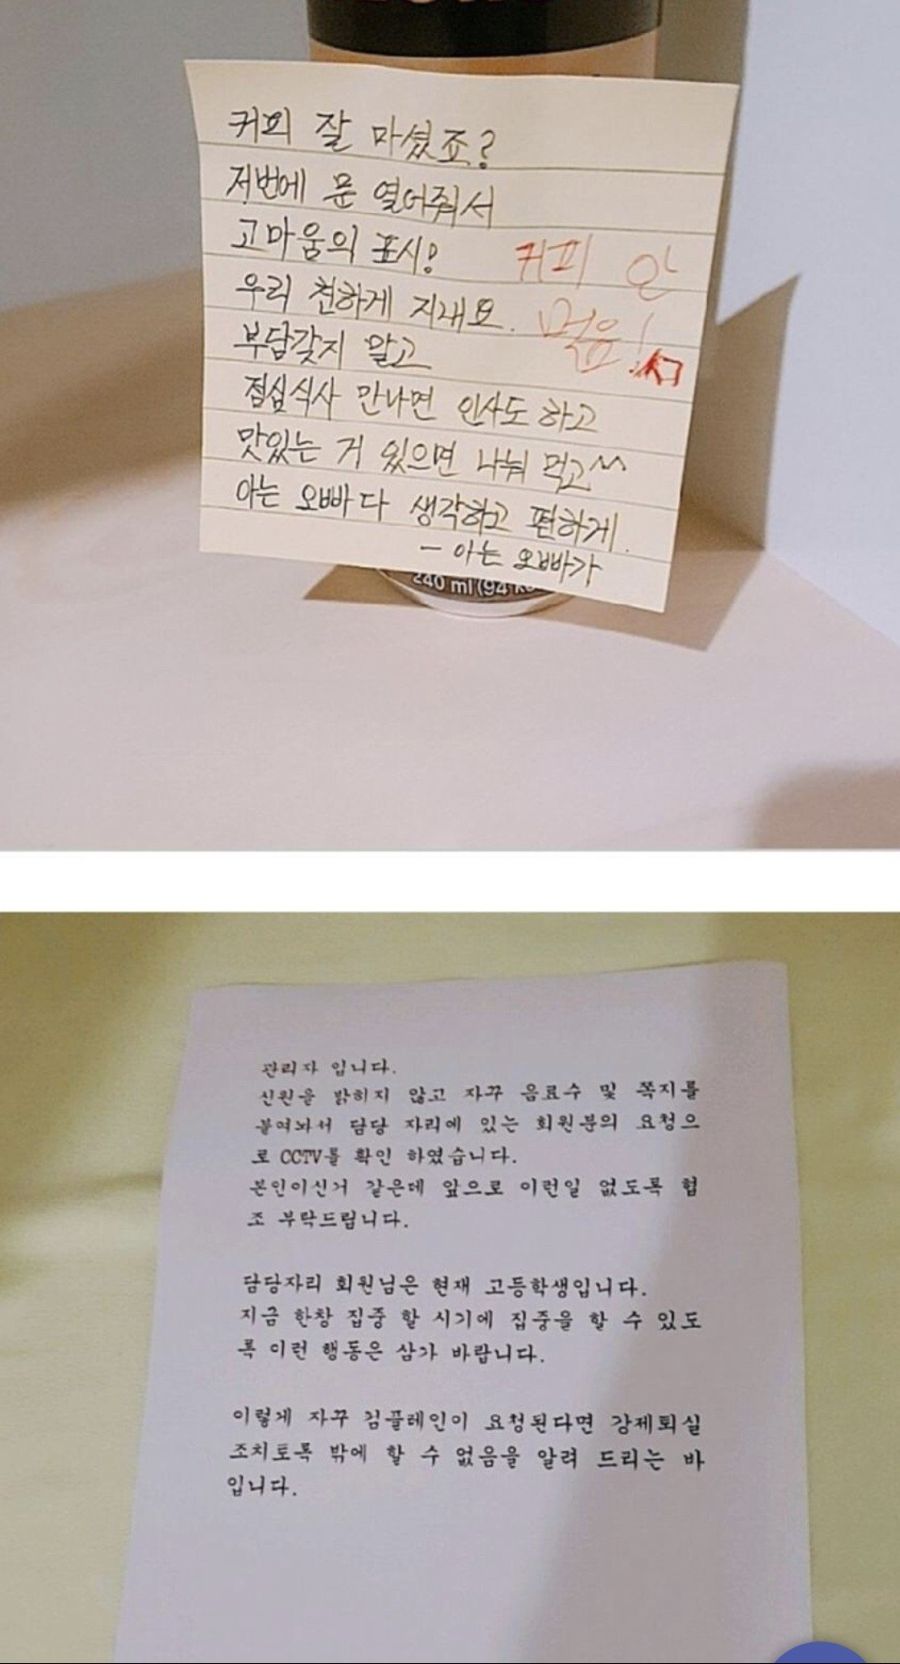 커피 잘 마셨죠?
저번에 문 열어줘서
고마움의 표시!
우리 친하게 지내요.
부담갖지 말고
점심식사 만나면 인사도 하고
맛있는 거 있으면 나눠 먹고^^
아는 오빠다 생각하고 편하게.
- 아는 오빠가
커피 안
먹음!
240 ml (94
관리자 입니다.
신원을 밝히지 않고 자꾸 음료수 및 쪽지를
붙여놔서 담당 자리에 있는 회원분의 요청으
로 CCTV를 확인 하였습니다.
본인이신거 같은데 앞으로 이런일 없도록 협
조 부탁드립니다.
담당자리 회원님은 현재 고등학생입니다.
지금 한창 집중 할 시기에 집중을 할 수 있도
록 이런 행동은 삼가 바랍니다.
이렇게 자꾸 컴플레인이 요청된다면 강제퇴실
조치토록 밖에 할 수 없음을 알려 드리는 바
입니다.